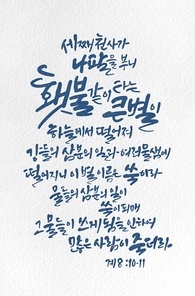 세째 천사가
나팔을 부니
횃불 같이 타는
큰 별이
하늘에서 떨어져
강들의 삼분의 일과 여러 물샘에
떨어지니 이 별 이름은 쑥이라
물들의 삼분의 일이
쑥이 되매
그 물들이 쓰게 됨을 인하여
많은 사람이 죽더라.
계 8:10-11